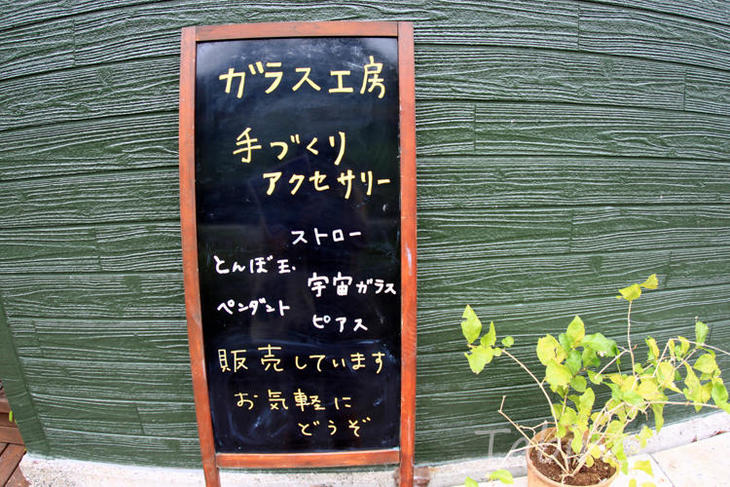 ガラス工房
手づくり
アクセサリー
ストロー
とんぼ玉
宇宙ガラス
ペンダント
ピアス
販売しています
お気軽に
どうぞ